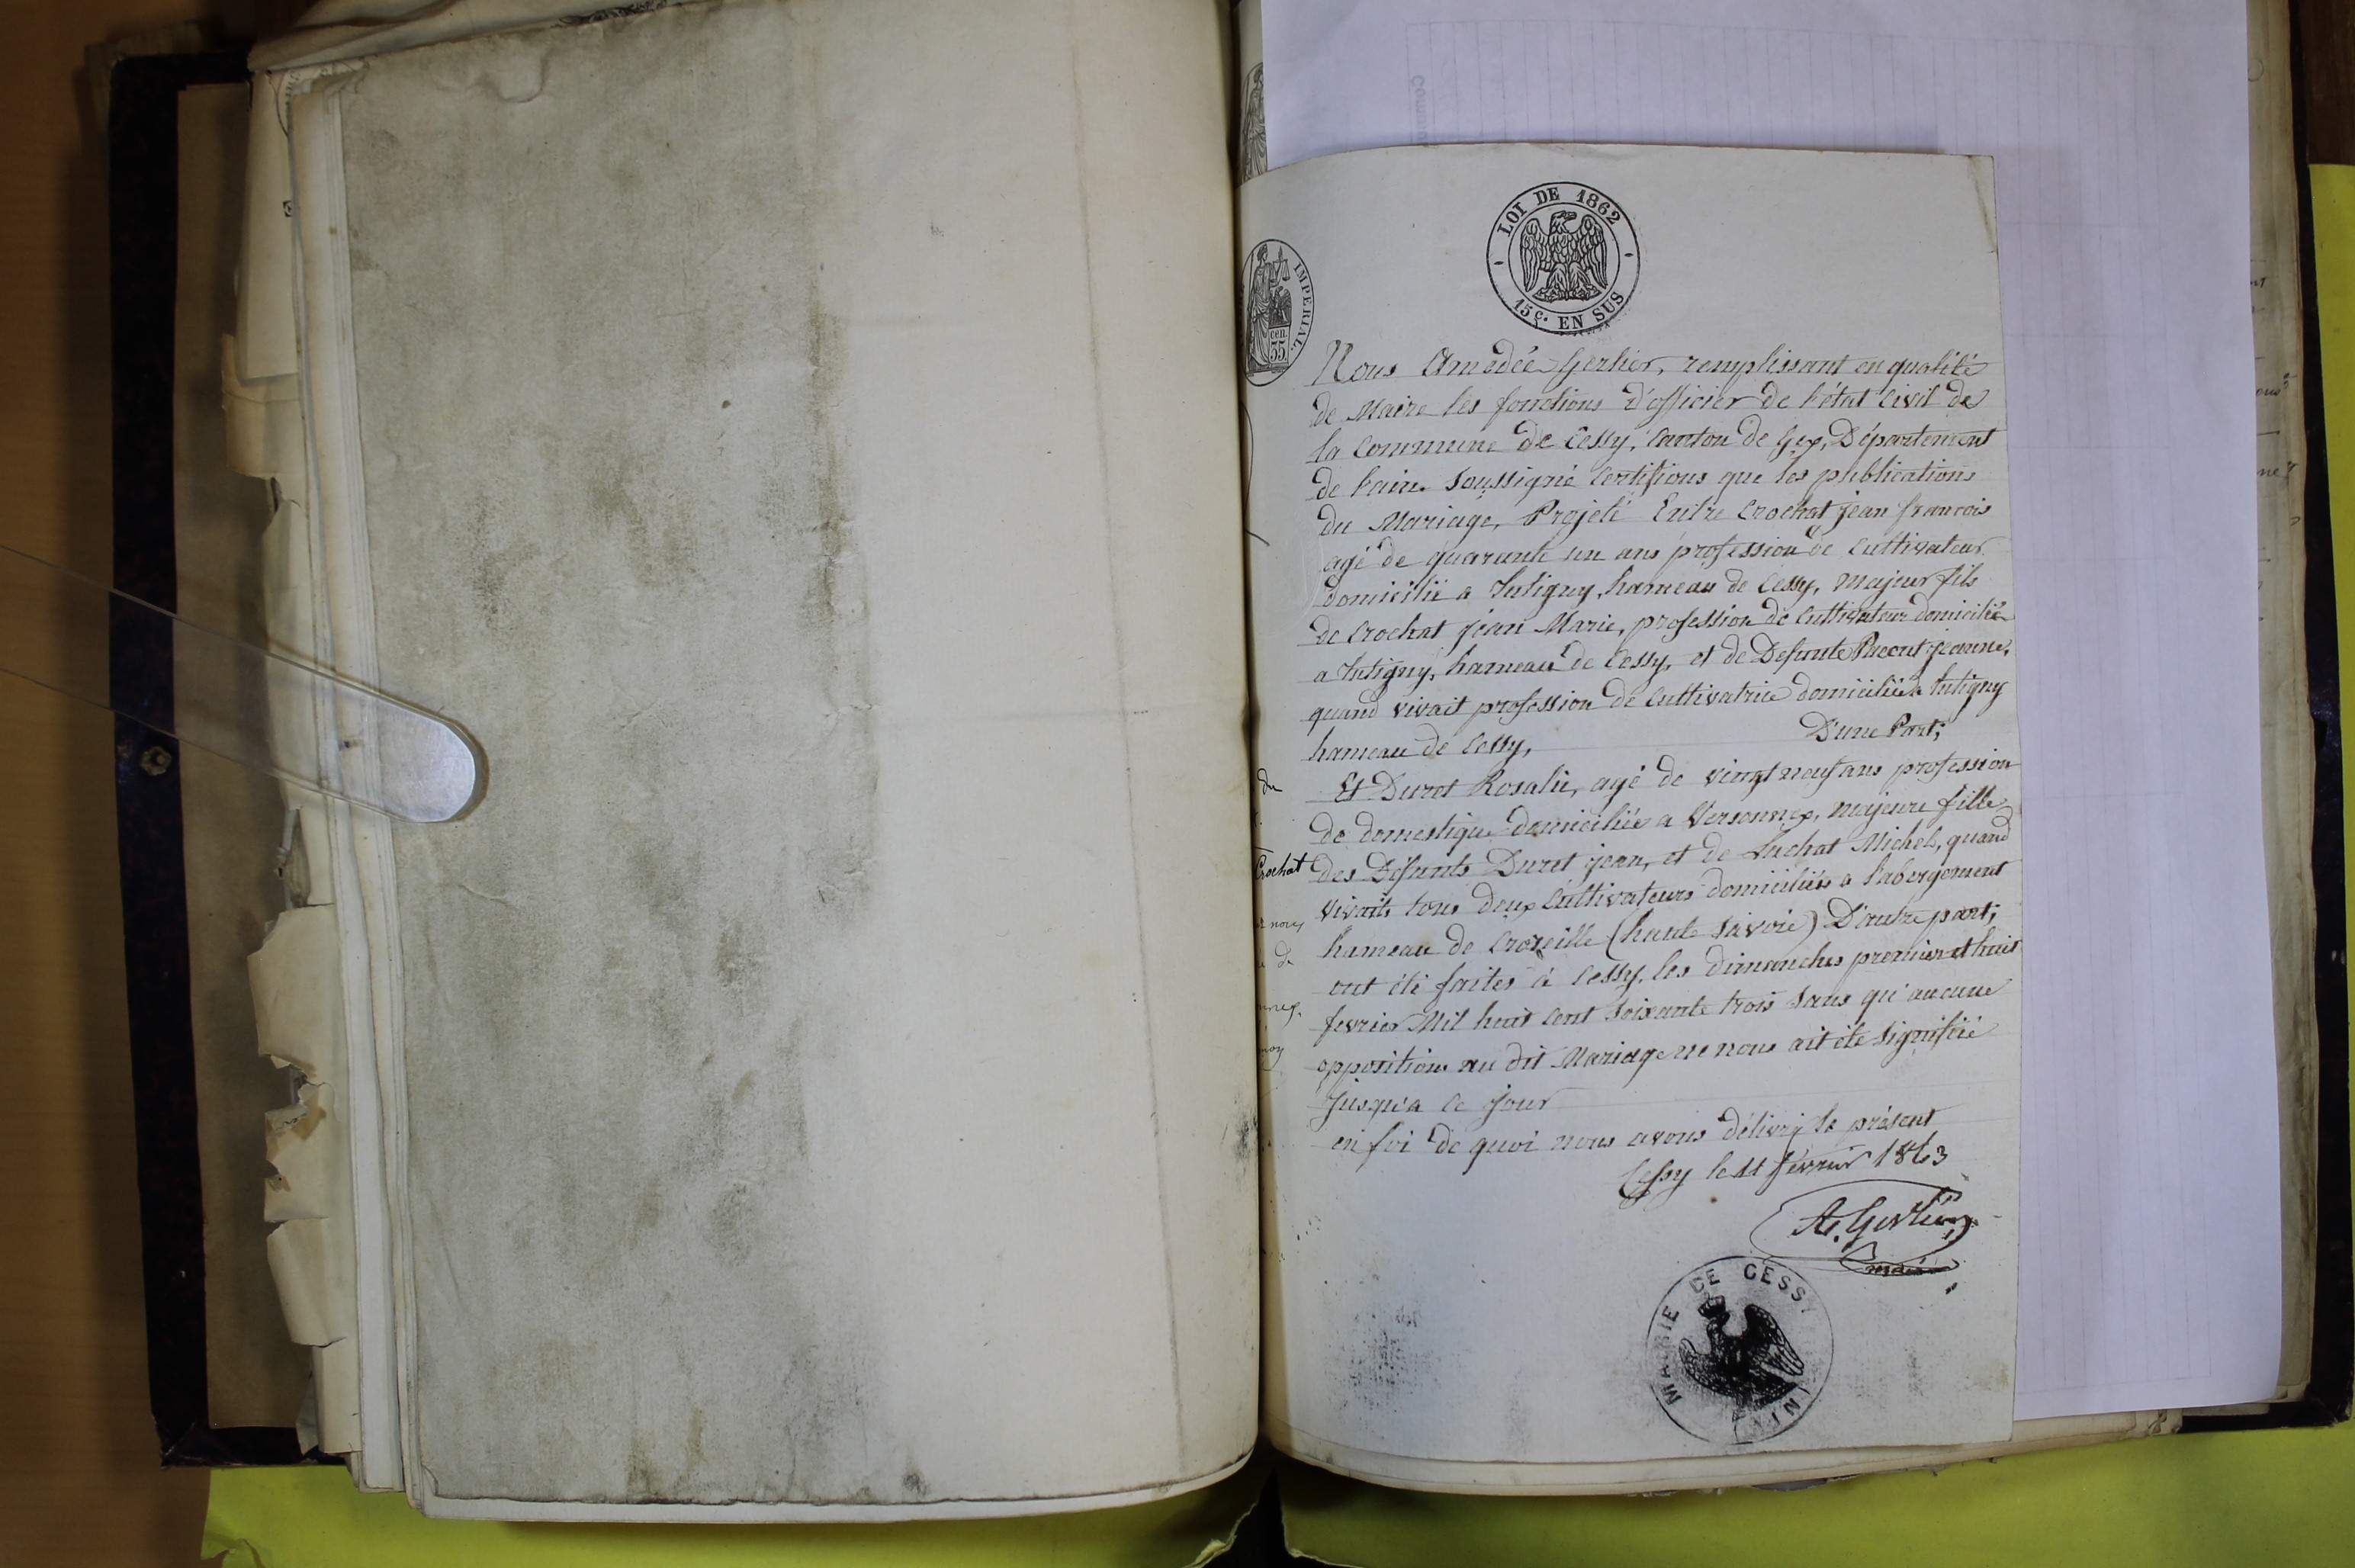 LOI DE 1862
15 c. EN SUS
IMPERIAL.
cen
35
Nous Amédée Gerlier, remplissant en qualité
de Maire les fonctions d'officier de l'état Civil de
la Commune de Cessy, Canton de Gex, Département
de l'ain. Soussigné Certifions que les publications
du Mariage, Projeté Entre Crochat jean françois
agé de quarante un ans profession de Cultivateur
domicilié a Intigny, hameau de Cessy, majeur fils
de Crochat jean Marie, profession de Cultivateur domicilié
a Intigny, hameau de Cessy, et de Defunte jeanne,
quand vivait profession de Cultivatrice domiciliée a Intigny
hameau de Cessy, D'une Part;
Et Duret Rosalie, agé de vingt neuf ans profession
de domestique domiciliée a Versonnex, majeure fille
des Défunts Duret jean, et de Luchat Michel, quand
vivaits tous deux Cultivateurs domiciliés a l'abergement
hameau de (haute Savoie) D'autre part;
ont été faites à Cessy, les dimanches premier et huit
fevrier Mil huit Cent Soixante trois Sans qu'aucune
opposition au dit Mariage ne nous ait été Signifiée
Jusqu'a Ce Jour
en foi de quoi nous avons délivré le présent
Cessy le 11 fevrier 1863
A. Gerlier
maire
MAIRIE DE CESSY
(AIN)
du
Crochat
nous
de